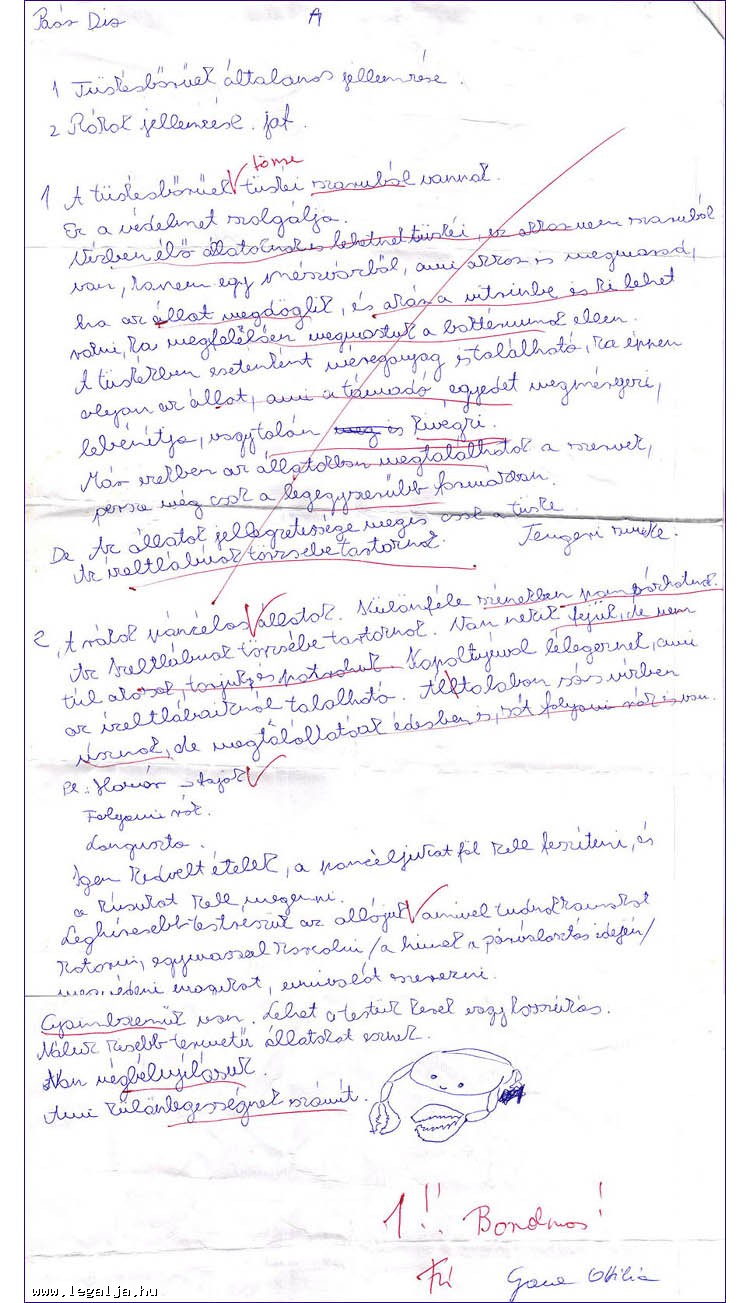 Paár Dis A
1 Tüskésbőrűek általános jellemzése.
2 Rákok jellemzése. jaf.
töme
1 A tüskésbőrűek tüskéi szaruból vannak.
Ez a védelmet szolgálja.
Vízben élő állatoknak is lehetnek tüskéi, ez akkor nem szaruból
van, hanem egy mészvázból, ami akkor is megmarad,
ha az állat megdöglik, és akár a vitrinbe is ki lehet
rakni, ha megfelelően megmostuk a baktériumok ellen.
A tüskékben esetenként méreganyag is található, ha éppen
olyan az állat, ami a támadó egyedet megmérgezi,
lebénítja, vagy talán meg is kivégzi.
Már ezekben az állatokban megtalálhatók a szervek,
persze még csak a legegyszerűbb formárban.
De Az állatok jellegzetessége mégis csak a tüske.
Az ízeltlábúak törzsébe tartoznak. Tengeri sünke.
2, A rákok páncélos állatok. Különféle színekben pompázhatnak.
Az Ízeltlábúak törzsébe tartoznak. Van nekik fejük, de nem
túl okosak, torjuk és potrohuk. Kopoltyúval lélegeznek, ami
az ízeltlábaiknál található. Álltalában sós vízben
úsznak, de megtalálhatóak édesben is, sőt folyami rák is van.
Pl.: Homár → tajok
Folyami rák.
Languszta.
Igen kedvelt ételek, a páncéljukat föl kell feszíteni, és
a húsukat kell megenni.
Leghíresebb testrészük az ollójuk amivel tudnak homokot
kotorni, egymással harcolni /a hímek a párválasztás idején/
megvédeni magukat, ennivalót szerezni.
Gyomlszemük van. Lehet a testük kerek vagy hosszúkás.
Náluk kisebb termetű állatokat esznek.
Van végbélnyílásuk.
Ami különlegességnek számít.
1!! Borzalmas!
www.legalja.hu